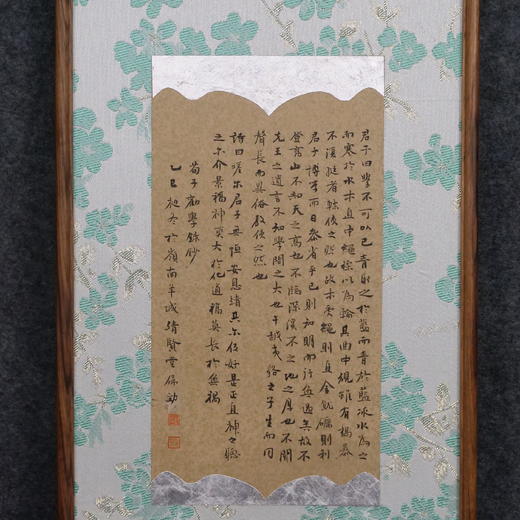 君子曰學不可以已青取之於藍而青於藍冰水為之
而寒於水木直中繩輮以為輪其曲中規雖有槁暴
不復挺者輮使之然也故木受繩則直金就礪則利
君子博學而日參省乎己則知明而行無過矣故不
登高山不知天之高也不臨深溪不之地之厚也不聞
先王之遺言不知學問之大也干越夷貉之子生而同
聲長而異俗教使之然也
詩曰嗟尔君子無恒安息靖共尔位好是正直神之聽
之尔介景福神莫大於化道福莫長於無禍
荀子勸學錄鈔
乙巳初冬於嶺南羊城清賢堂